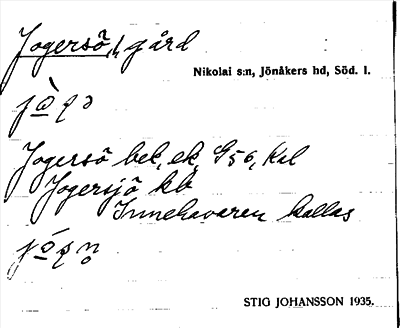 Jogersö, gård
Nikolai s:n, Jönåkers hd, Söd. l.
Jogersö bek, ek, G56, kal
Jogersjö kb
Innehavaren kallas
STIG JOHANSSON 1935.